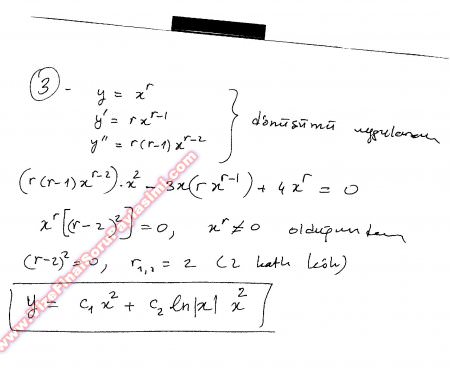 3 - y = x^r
y' = r x^{r-1} } dönüşümü uygulanırsa
y'' = r(r-1) x^{r-2}
(r(r-1) x^{r-2}).x^2 - 3x(r x^{r-1}) + 4x^r = 0
x^r [(r-2)^2] = 0, x^r ≠ 0 olduğundan
(r-2)^2 = 0, r_{1,2} = 2 (2 katlı kök)
y = c_1 x^2 + c_2 ln|x| x^2
www.VizeFinalSoruPaylasimi.com